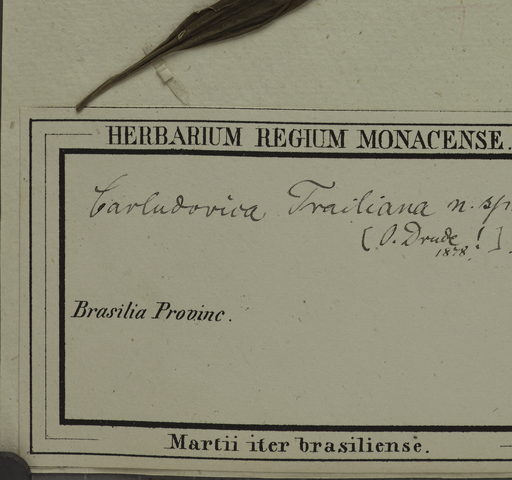 HERBARIUM REGIUM MONACENSE.
Carludovica Trailiana n. sp.
[O. Drude ! ]
1878.
Brasilia Provinc.
Martii iter brasiliense.